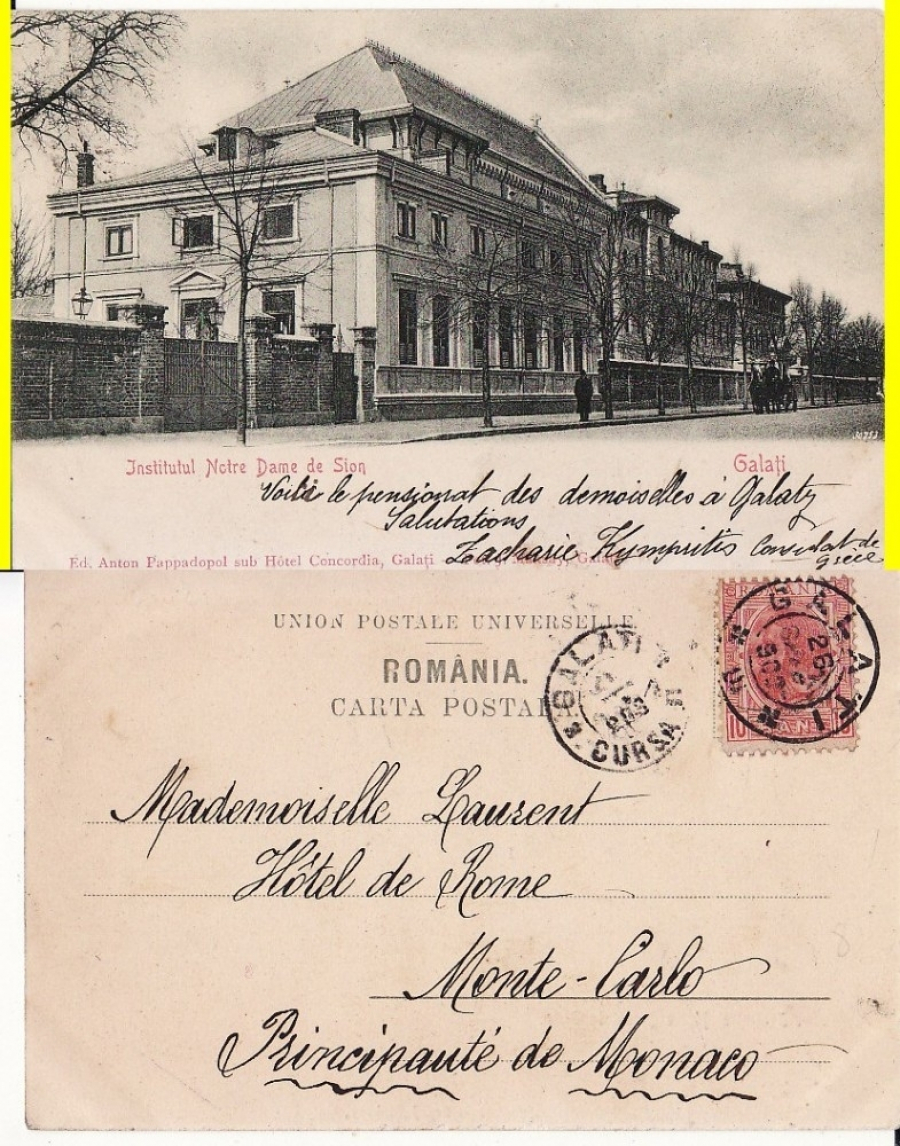 Institutul Notre Dame de Sion
Galați
Voilà le pensionat des demoiselles à Galatz
Salutations
Zacharie Kympritis Consulat de
Grèce
Ed. Anton Pappadopol sub Hôtel Concordia, Galați
UNION POSTALE UNIVERSELLE
ROMÂNIA.
CARTA POSTALA
GALATI
CURSA
ROMANIA
GALATI
26
10 BANI
Mademoiselle Laurent
Hôtel de Rome
Monte-Carlo
Principauté de Monaco